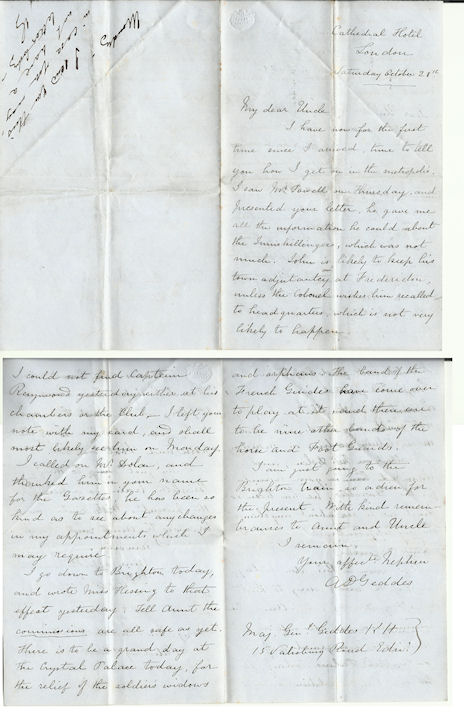 Cathedral Hotel
London
Saturday October 28th
My dear Uncle
I have now for the first
time since I arrived, time to tell
you how I get on in the metropolis.
I saw Mr. Powell on Thursday and
presented your letter, he gave me
all the information he could about
the Inniskillengers, which was not
much. John is likely to keep his
town adjutantcy at Fredericton,
unless the Colonel wishes him recalled
to headquarters, which is not very
likely to happen.
I could not find Captain
yesterday either at his
chambers or the Club, I left your
note with my card, and shall
most likely see him on Monday.
I called on Mr. Dolan, and
thanked him in your name
for the Gazettes, he has been so
kind as to see about any changes
in my appointments which I
may require
I go down to Brighton today,
and wrote Miss to that
effect yesterday. Tell Aunt the
commissions are all safe as yet.
There is to be a grand day at
the Crystal Palace today, for
the relief of the soldiers widows
and orphans. The band of the
French Guides have come over
to play at it, and there are
to be nine other bands of the
horse and Foot Guards.
I am just going to the
Brighton train so adieu for
the present. With kind remem-
brances to Aunt and Uncle
I remain,
Your affecte Nephew
A D Geddes
Maj. Genl. Geddes K H
15 Street Edinr